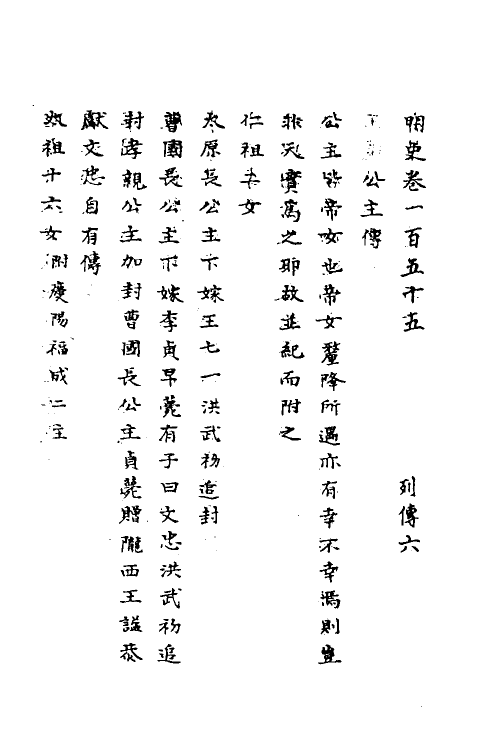 明史卷一百五十五　列傳六
公主傳
公主皆帝女也帝女釐降所遇亦有幸不幸焉則豈
非天實為之耶故並紀而附之
仁祖二女
太原長公主下嫁王七一洪武初追封
曹國長公主下嫁李貞早薨有子曰文忠洪武初追
封孝親公主加封曹國長公主貞薨贈隴西王謚恭
獻文忠自有傳
太祖十六女附慶陽福成二主